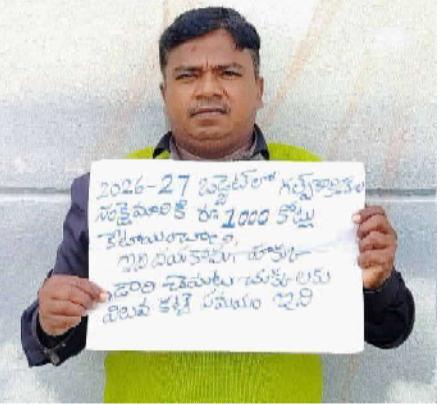 2026-27 బడ్జెట్ లో గల్ఫ్ కార్మికుల
సంక్షేమానికి రూ 1000 కోట్లు
కేటాయించాలి,
ఇది దయకాదు, హక్కు
వారి చెమట చుక్కలకు
విలువ కట్టే సమయం ఇది